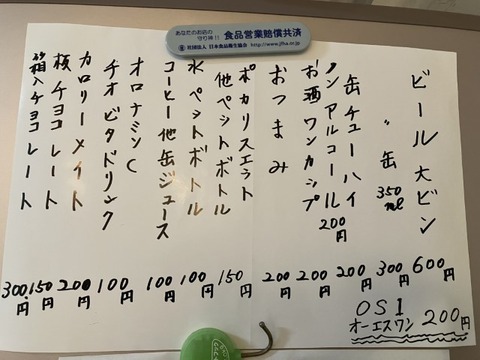 あなたのお店の
守り神!!
食品営業賠償共済
社団法人 日本食品衛生協会 http://www.jfha.or.jp
ビール大ビン 600円
〃 缶 350ml 300円
缶チューハイ 200円
ノンアルコール 200円
お酒ワンカップ 200円
おつまみ 200円
ポカリスエット
他ペットボトル 150円
水ペットボトル 100円
コーヒー他缶ジュース 100円
オロナミンC
チオビタドリンク 100円
カロリーメイト 200円
板チョコレート 150円
箱入チョコレート 300円
OS1
オーエスワン 200円